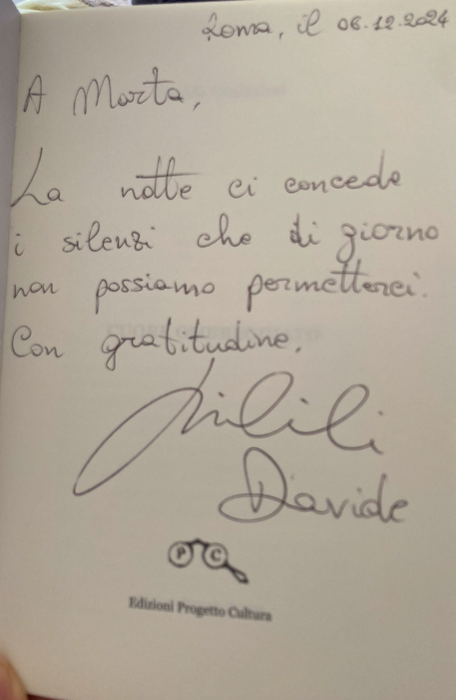 Roma, il 06.12.2024
A Marta,
La notte ci concede
i silenzi che di giorno
non possiamo permetterci.
Con gratitudine.
Davide
P C
Edizioni Progetto Cultura